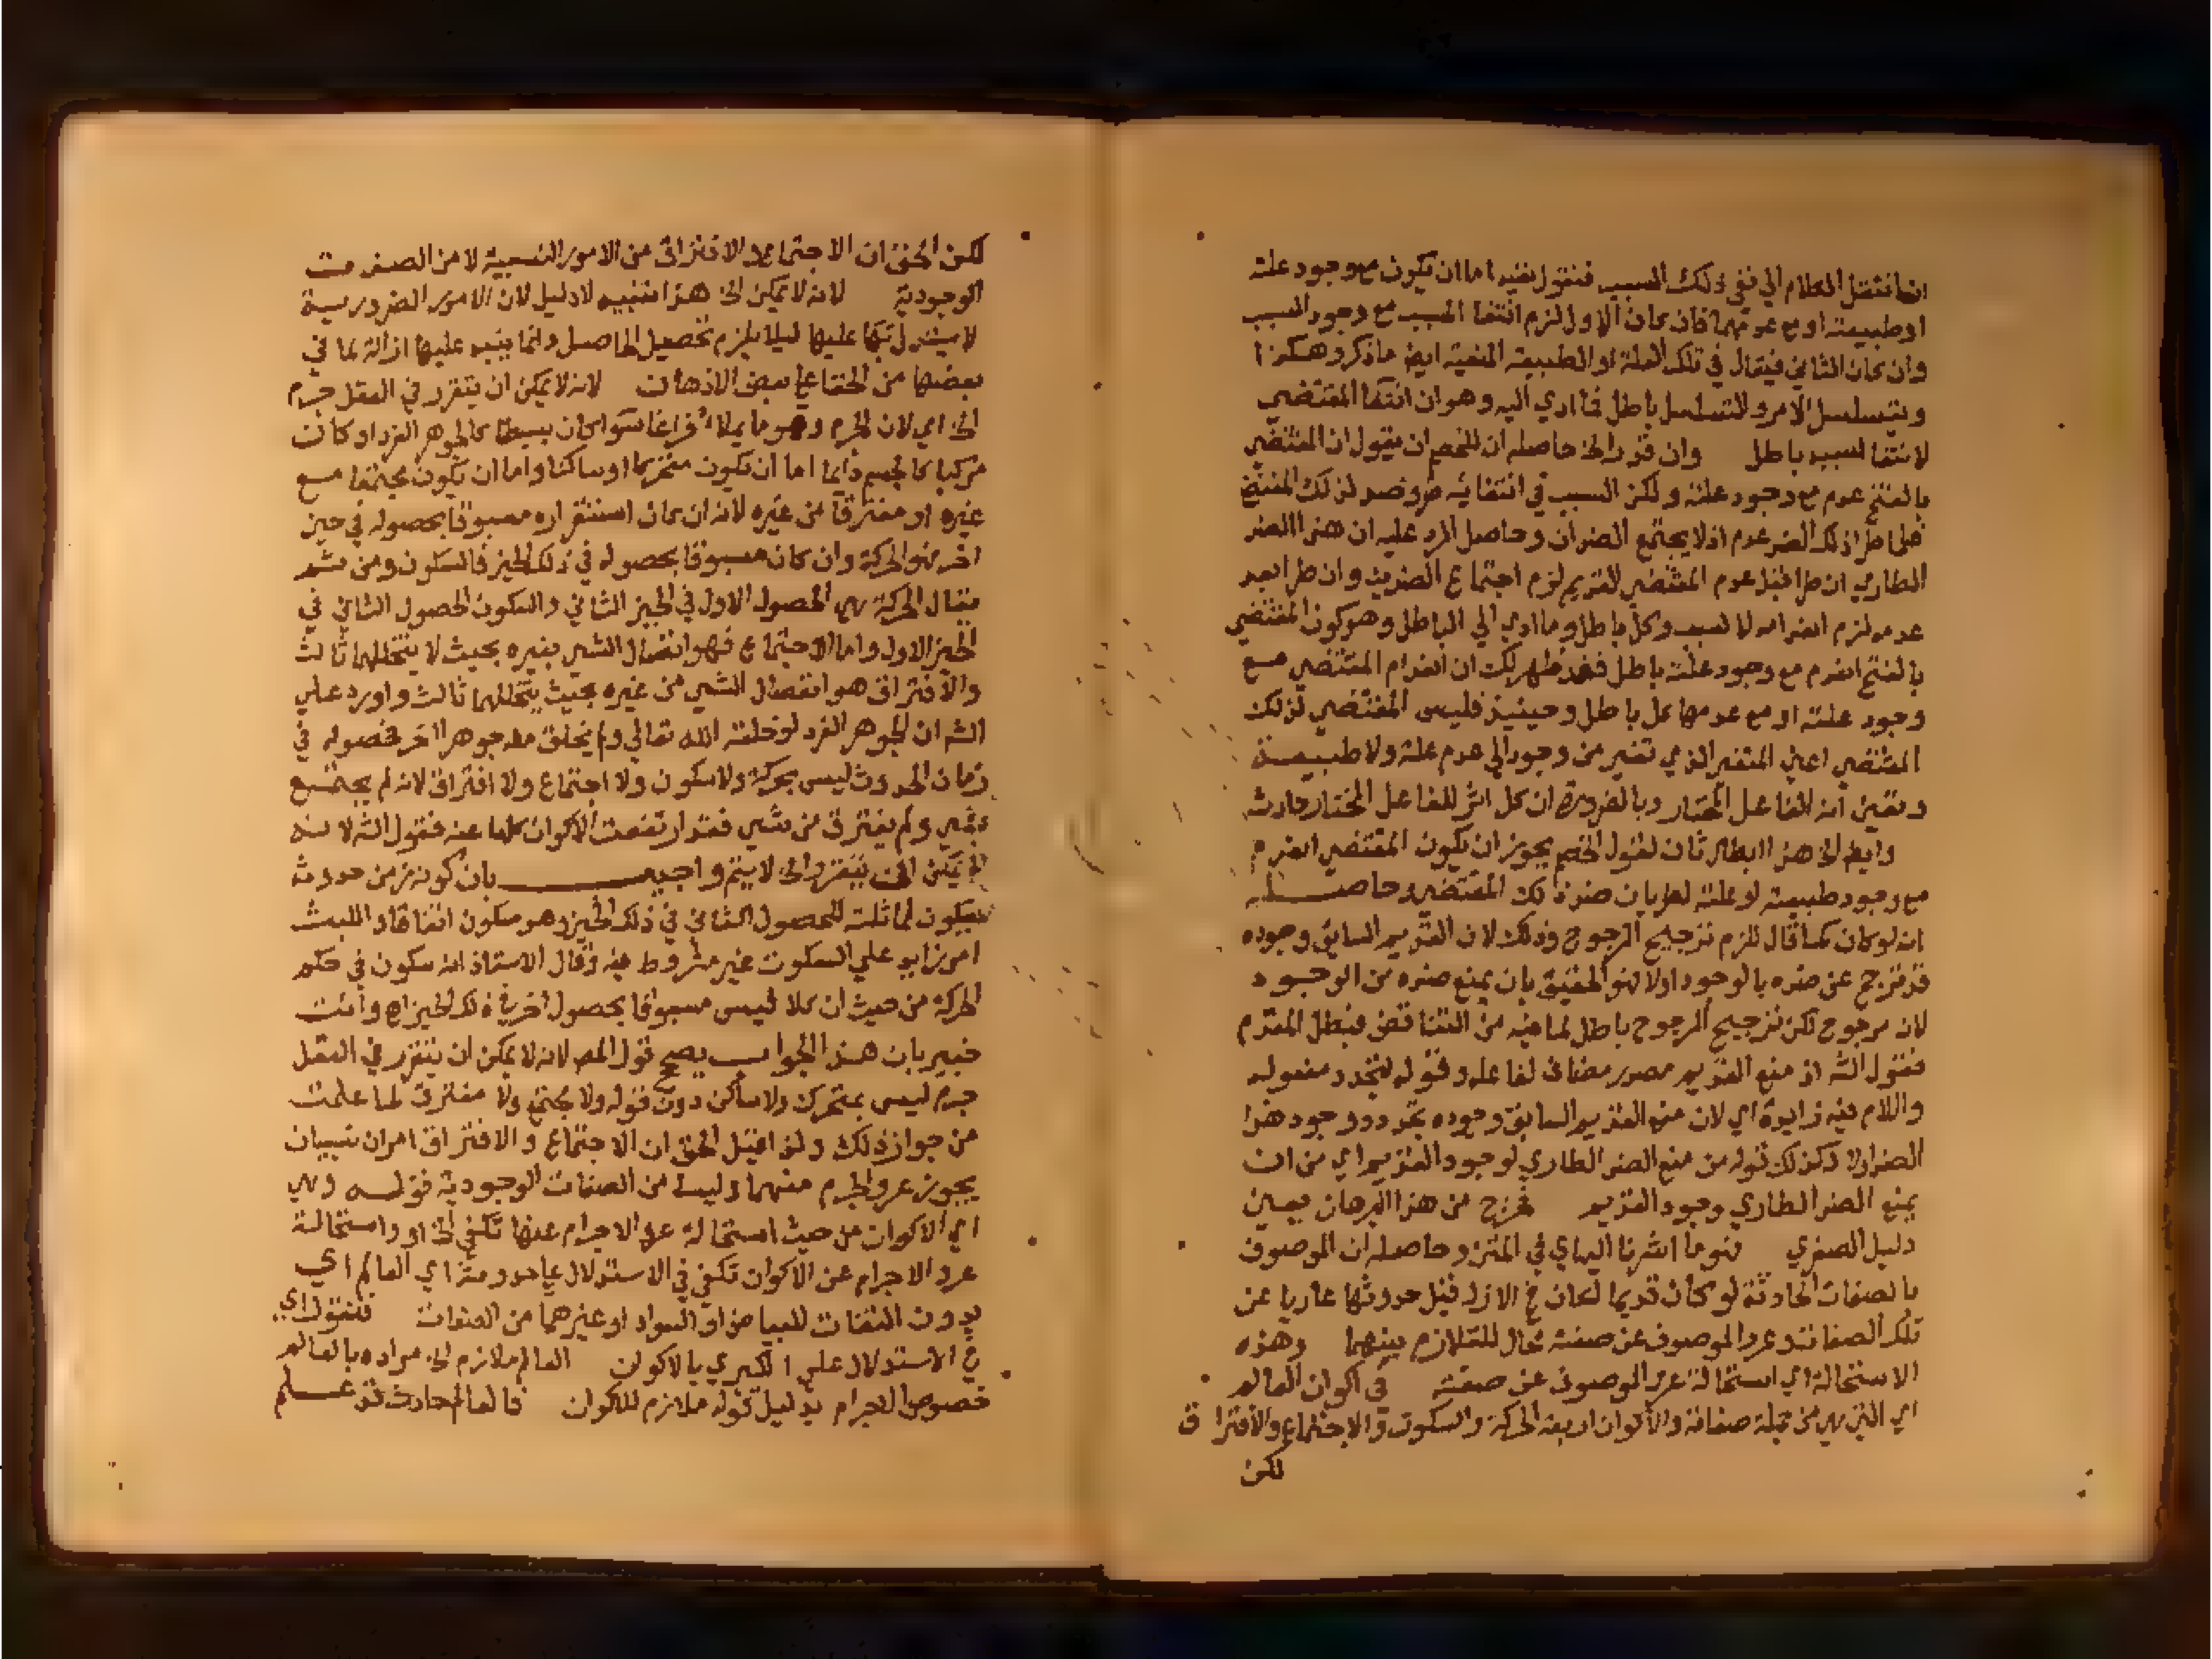 انا ننقل الكلام الي نفي ذلك السبب فنقول نفيه اما ان يكون مع وجود علته
او طبيعته او مع عدمهما فان كان الاول لزم انتفا المسبب مع وجود السبب
وان كان الثاني فيقال في تلك العلة او الطبيعة المنفية ايضا ما ذكر وهكذا
ويتسلسل الامر والتسلسل باطل فما ادي اليه وهو ان انتفا المقتضي
لانتفا سببه باطل وان قدر الخ حاصله ان للخصم ان يقول ان المقتضي
بالفتح عدم مع وجود علته ولكن السبب في انتفائه طرو ضد لذلك المقتضي
فلما طرا ذلك الضد عدم اذ لا يجتمع الضدان وحاصل الرد عليه ان هذا الضد
الطاري ان طرا قبل عدم المقتضي القديم لزم اجتماع الضدين وان طرا بعد
عدمه لزم انعدامه لا لسبب وكل باطل وما ادي الي الباطل وهو كون المقتضي
بالفتح انعدم مع وجود علته باطل فقد ظهر لك ان انعدام المقتضي مع
وجود علته او مع عدمها كل باطل وحينيذ فليس المقتضي لذلك
المقتضي اعني المتغير الذي تغير من وجود الي عدم علة ولا طبيعة
وتعين انه الفاعل المختار وبالضرورة ان كل اثر للفاعل المختار حادث
وايضا الخ هذا ابطال ثان لقول الخصم يجوز ان يكون المقتضي انعدم
مع وجود طبيعته او علته لطريان ضد ذلك المقتضي وحاصله
انه لو كان كما قال للزم ترجيح المرجوح وذلك لان القديم السابق وجوده
قد ترجح عن ضده بالوجود اولا فهو الحقيق بان يمنع ضده من الوجود
لانه مرجوح لكن ترجيح المرجوح باطل لما فيه من التناقض فبطل المقدم
فقول الشه اذ منع القديم مصدر مضاف لفاعله وقوله لتجدد مفعوله
واللام فيه زايدة اي لان منع القديم السابق وجوده تجدد وجود هذا
الضد اولا وكذلك قوله من منع الضد الطاري لوجود القديم اي من ان
يمنع الضد الطاري وجود القديم فخرج من هذا البرهان يعين
دليل الصغري فهو ما اشرنا اليه اي في المتن وحاصله ان الموصوف
بالصفات الحادثة لو كان قديما لكان في الازل قبل حدوثها عاريا عن
تلك الصفات وعرو الموصوف عن صفته محال للتلازم بينهما وهذه
الاستحالة اي استحالة عرو الموصوف عن صفته في اكوان العالم
اي التي هي من جملة صفاته والاكوان اربعة الحركة والسكون والاجتماع والافتراق
لكن
لكن الحق ان الاجتماع والافتراق من الامور النسبية لا من الصفات
الوجودية لانه لا يمكن الخ هذا تنبيه لا دليل لان الامور الضرورية
لا يستدل بها عليها ليلا يلزم تحصيل الحاصل وانما ينبه عليها ازالة لما في
بعضها من الخفا علي بعض الاذهان لانه لا يمكن ان يتقرر في العقل جرم
الخ اي لان الجرم وهو ما يملا فراغا سوا كان بسيطا كالجوهر الفرد او كان
مركبا كالجسم دايما اما ان يكون متحركا او ساكنا واما ان يكون مجتمعا مع
غيره او مفترقا من غيره لانه ان كان استقراره مسبوقا بحصوله في حيز
اخر فهو الحركة وان كان مسبوقا بحصوله في ذلك الحيز فالسكون ومن ثم
يقال الحركة هي الحصول الاول في الحيز الثاني والسكون الحصول الثاني في
الحيز الاول واما الاجتماع فهو اتصال الشي بغيره بحيث لا يتخللهما ثالث
والافتراق هو انفصال الشي من غيره بحيث يتخللهما ثالث واورد علي
الشه ان الجوهر الفرد لو خلقه الله تعالي ولم يخلق معه جوهرا اخر فحصوله في
زمان الحدوث ليس بحركة ولا سكون ولا اجتماع ولا افتراق لانه لم يجتمع
بشي ولم يفترق من شي فقد ارتفعت الاكوان كلها عنه فقول الشه لانه
لا يمكن ان يتقرر الخ لا يتم واجيب بان كونه زمن حدوثه
سكون لمماثلته للحصول الثاني في ذلك الحيز وهو سكون اتفاقا واللبث
امر زايد علي السكون غير مشروط فيه وقال الاستاذ انه سكون في حكم
الحركة من حيث ان كلا ليس مسبوقا بحصول اخر في ذلك الحيز اهـ وانت
خبير بان هذا الجواب يصحح قول المص لانه لا يمكن ان يتقرر في العقل
جرم ليس بمتحرك ولا ساكن دون قوله ولا مجتمع ولا مفترق لما علمت
من جواز ذلك ولذا قيل الحق ان الاجتماع والافتراق امران نسبيان
يجوز عرو الجرم منهما وليسا من الصفات الوجودية قوله وهي
اي الاكوان من حيث استحالة عرو الاجرام عنها تكفي الخ او واستحالة
عرو الاجرام عن الاكوان تكفي في الاستدلال علي حدوثه اي العالم اي
بدون التفات للبياض او السواد او غيرهما من الصفات فنقول اي
في الاستدلال علي الكبري بالاكوان العالم ملازم الخ مراده بالعالم
خصوص الاجرام بدليل قوله ملازم للاكوان فالعالم حادث قد علم